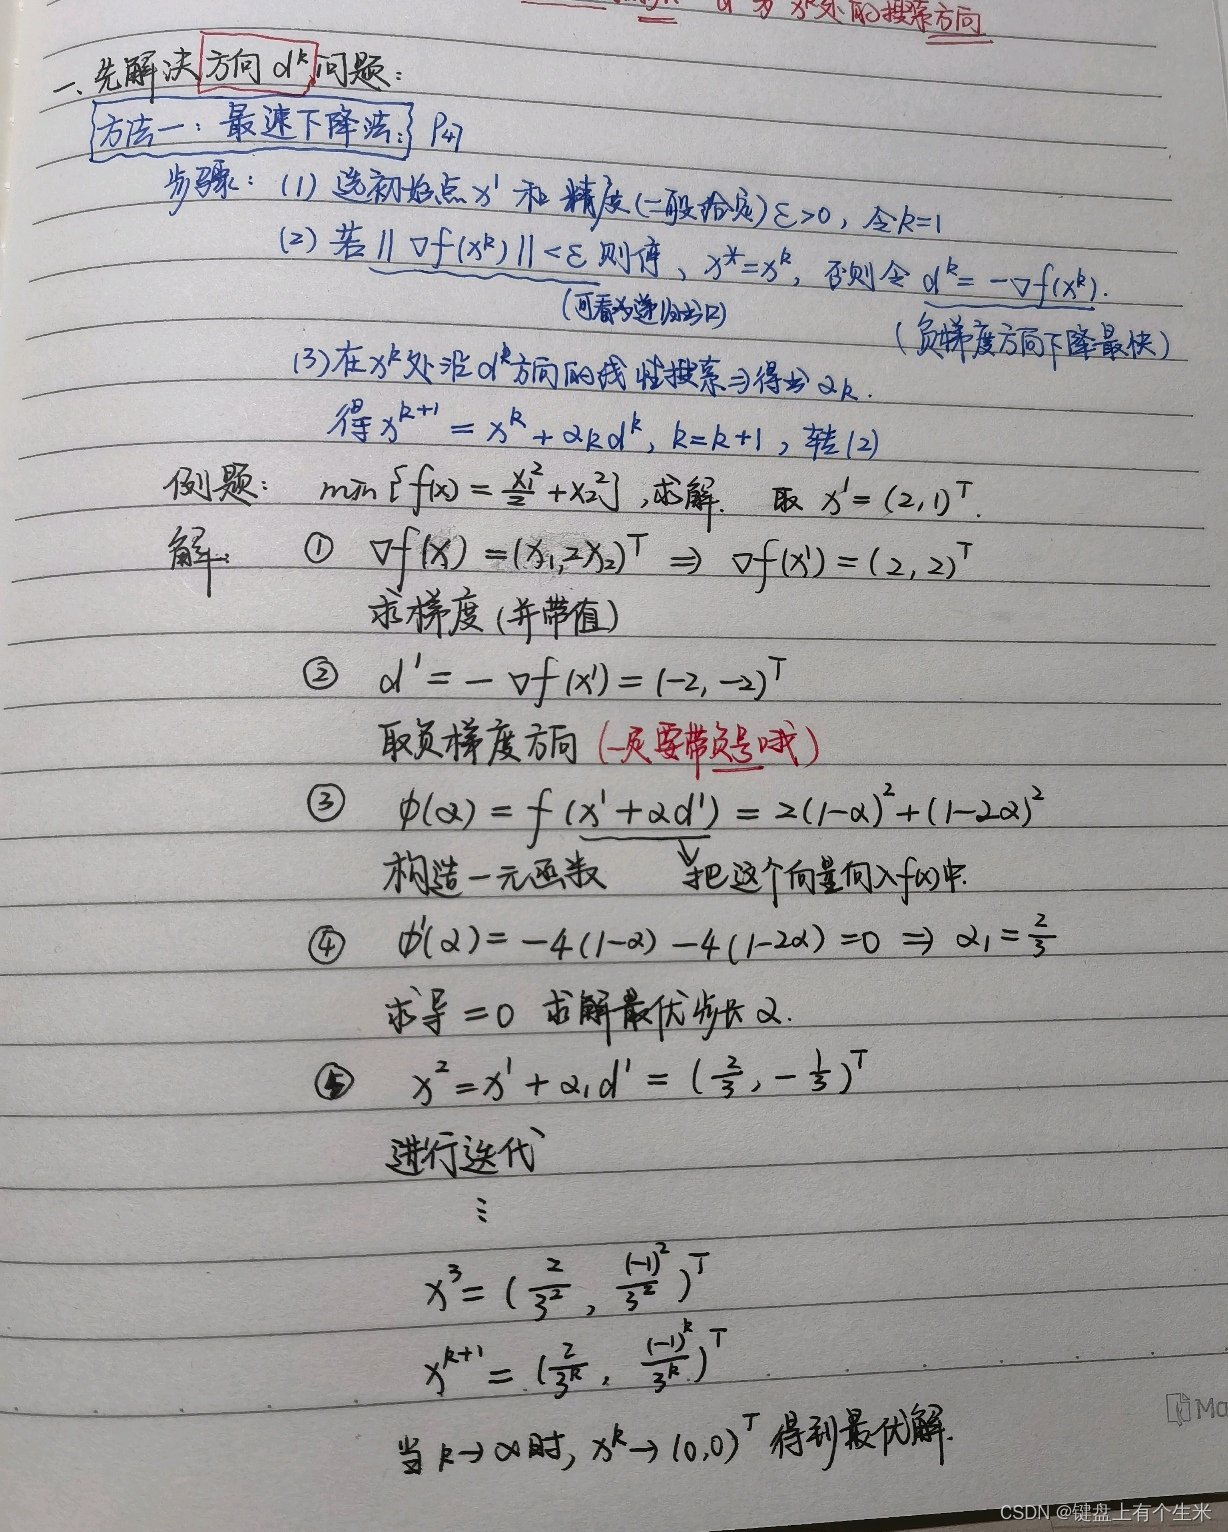 d 为 x^k处的搜索方向
一、先解决方向 d^k 问题：
方法一：最速下降法： P47
步骤：(1) 选初始点 x^1 和 精度(一般给定) ε>0，令k=1
(2) 若 ||∇f(x^k)||<ε 则停、x*=x^k，否则令 d^k=-∇f(x^k).
(可看为递归出口) (负梯度方向下降最快)
(3)在x^k处沿d^k方向的线性搜索⇒得出 α_k.
得x^{k+1} = x^k + α_k d^k, k=k+1，转(2)
例题： min{f(x) = x₁²/2 + x₂²}，求解. 取 x^1=(2,1)^T.
解： ① ∇f(x)=(x₁,2x₂)^T ⇒ ∇f(x^1)=(2,2)^T
求梯度(并带值)
② d^1=-∇f(x^1)=(-2,-2)^T
取负梯度方向 (一定要带负号哦)
③ φ(α) = f(x^1+αd^1) = 2(1-α)²+(1-2α)²
构造一元函数 把这个向量向入f(x)中.
④ φ'(α)=-4(1-α)-4(1-2α)=0 ⇒ α₁=2/3
求导=0 求解最优步长α.
⑤ x²=x^1+α₁d^1=(2/3,-1/3)^T
进行迭代
⋮
x³=(2/3², (-1)²/3²)^T
x^{k+1}=(2/3^k, (-1)^k/3^k)^T
当k→∞时，x^k→(0,0)^T 得到最优解.
CSDN @键盘上有个生米